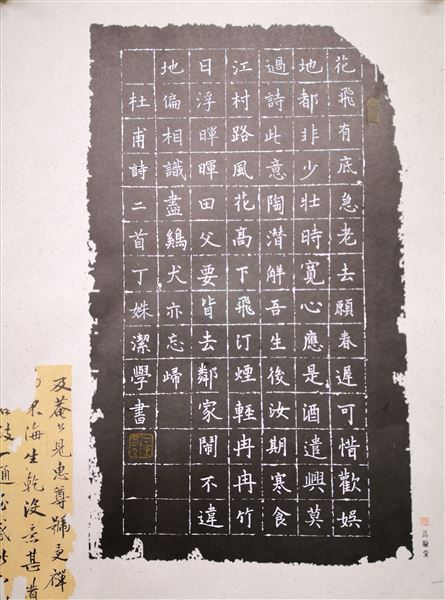 花飛有底急老去願春遲可惜歡娛
地都非少壯時寬心應是酒遣興莫
過詩此意陶潛解吾生後汝期寒食
江村路風花高下飛汀煙輕冉冉竹
日浮暉暉田父要皆去鄰家鬧不違
地偏相識盡鷄犬亦忘歸
杜甫詩二首丁姝潔學書
見惠尊號更禪
東海生乾沒言甚
品翰堂